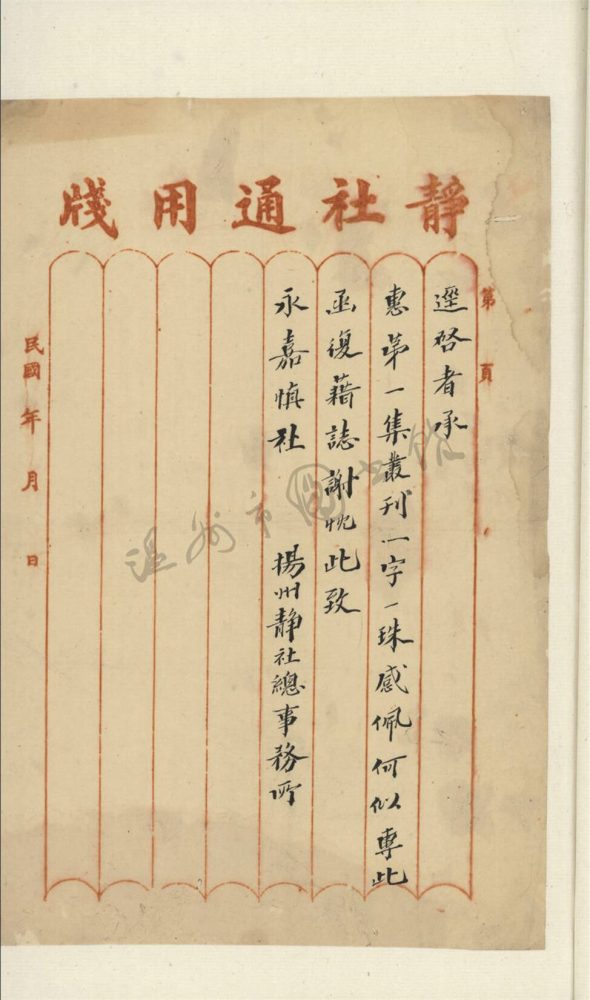 靜社通用牋
第 頁
逕啓者承
惠第一集叢刊一字一珠感佩何似專此
函復藉誌謝忱此致
永嘉慎社 揚州靜社總事務所
民國 年 月 日
温州市圖书馆